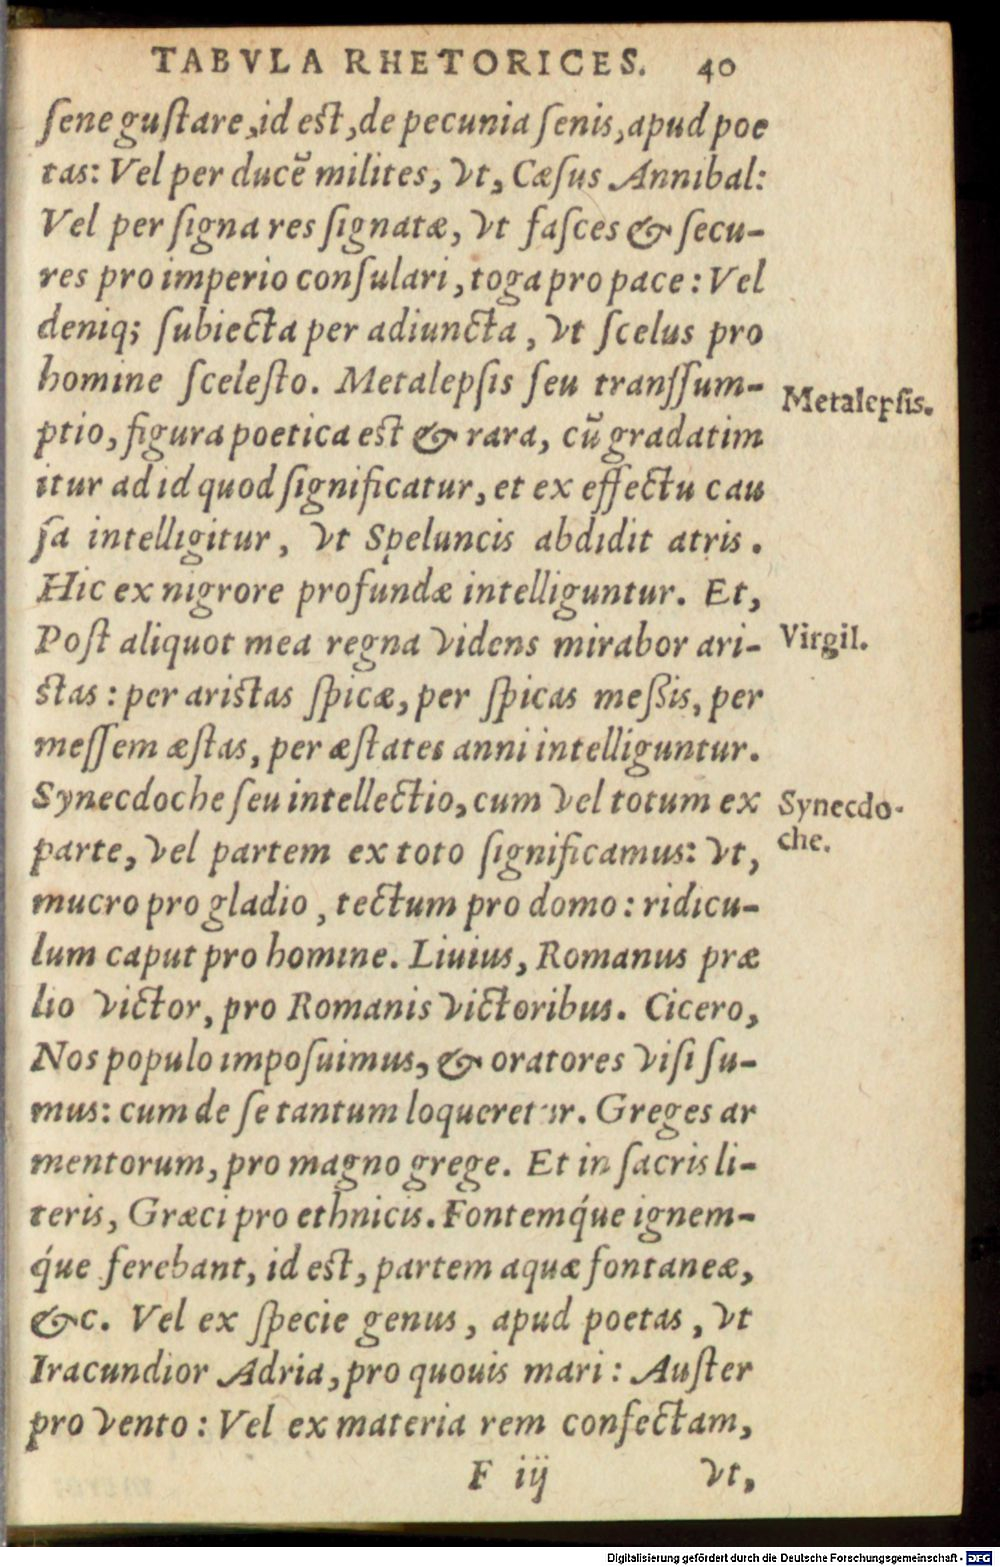 TABVLA RHETORICES. 40
ſene guſtare, id est, de pecunia ſenis, apud poe
tas: Vel per ducẽ milites, vt, Cæſus Annibal:
Vel per ſigna res ſignatæ, vt faſces & ſecu-
res pro imperio conſulari, toga pro pace: Vel
deniq; ſubiecta per adiuncta, vt ſcelus pro
homine ſceleſto. Metalepſis ſeu tranſſum-
ptio, figura poetica est & rara, cũ gradatim
itur ad id quod ſignificatur, et ex effectu cau
ſa intelligitur, vt Speluncis abdidit atris.
Hic ex nigrore profundæ intelliguntur. Et,
Poſt aliquot mea regna videns mirabor ari-
stas: per aristas ſpicæ, per ſpicas meßis, per
meſſem æſtas, per æſtates anni intelliguntur.
Synecdoche ſeu intellectio, cum vel totum ex
parte, vel partem ex toto ſignificamus: vt,
mucro pro gladio, tectum pro domo: ridicu-
lum caput pro homine. Liuius, Romanus præ
lio victor, pro Romanis victoribus. Cicero,
Nos populo impoſuimus, & oratores viſi ſu-
mus: cum de ſe tantum loqueretur. Greges ar
mentorum, pro magno grege. Et in ſacris li-
teris, Græci pro ethnicis. Fontemq́ue ignem-
q́ue ferebant, id est, partem aquæ fontaneæ,
&c. Vel ex ſpecie genus, apud poetas, vt
Iracundior Adria, pro quouis mari: Auſter
pro vento: Vel ex materia rem confectam,
F iij vt,
Metalepſis.
Virgil.
Synecdo-
che.
Digitalisierung gefördert durch die Deutsche Forschungsgemeinschaft - DFG